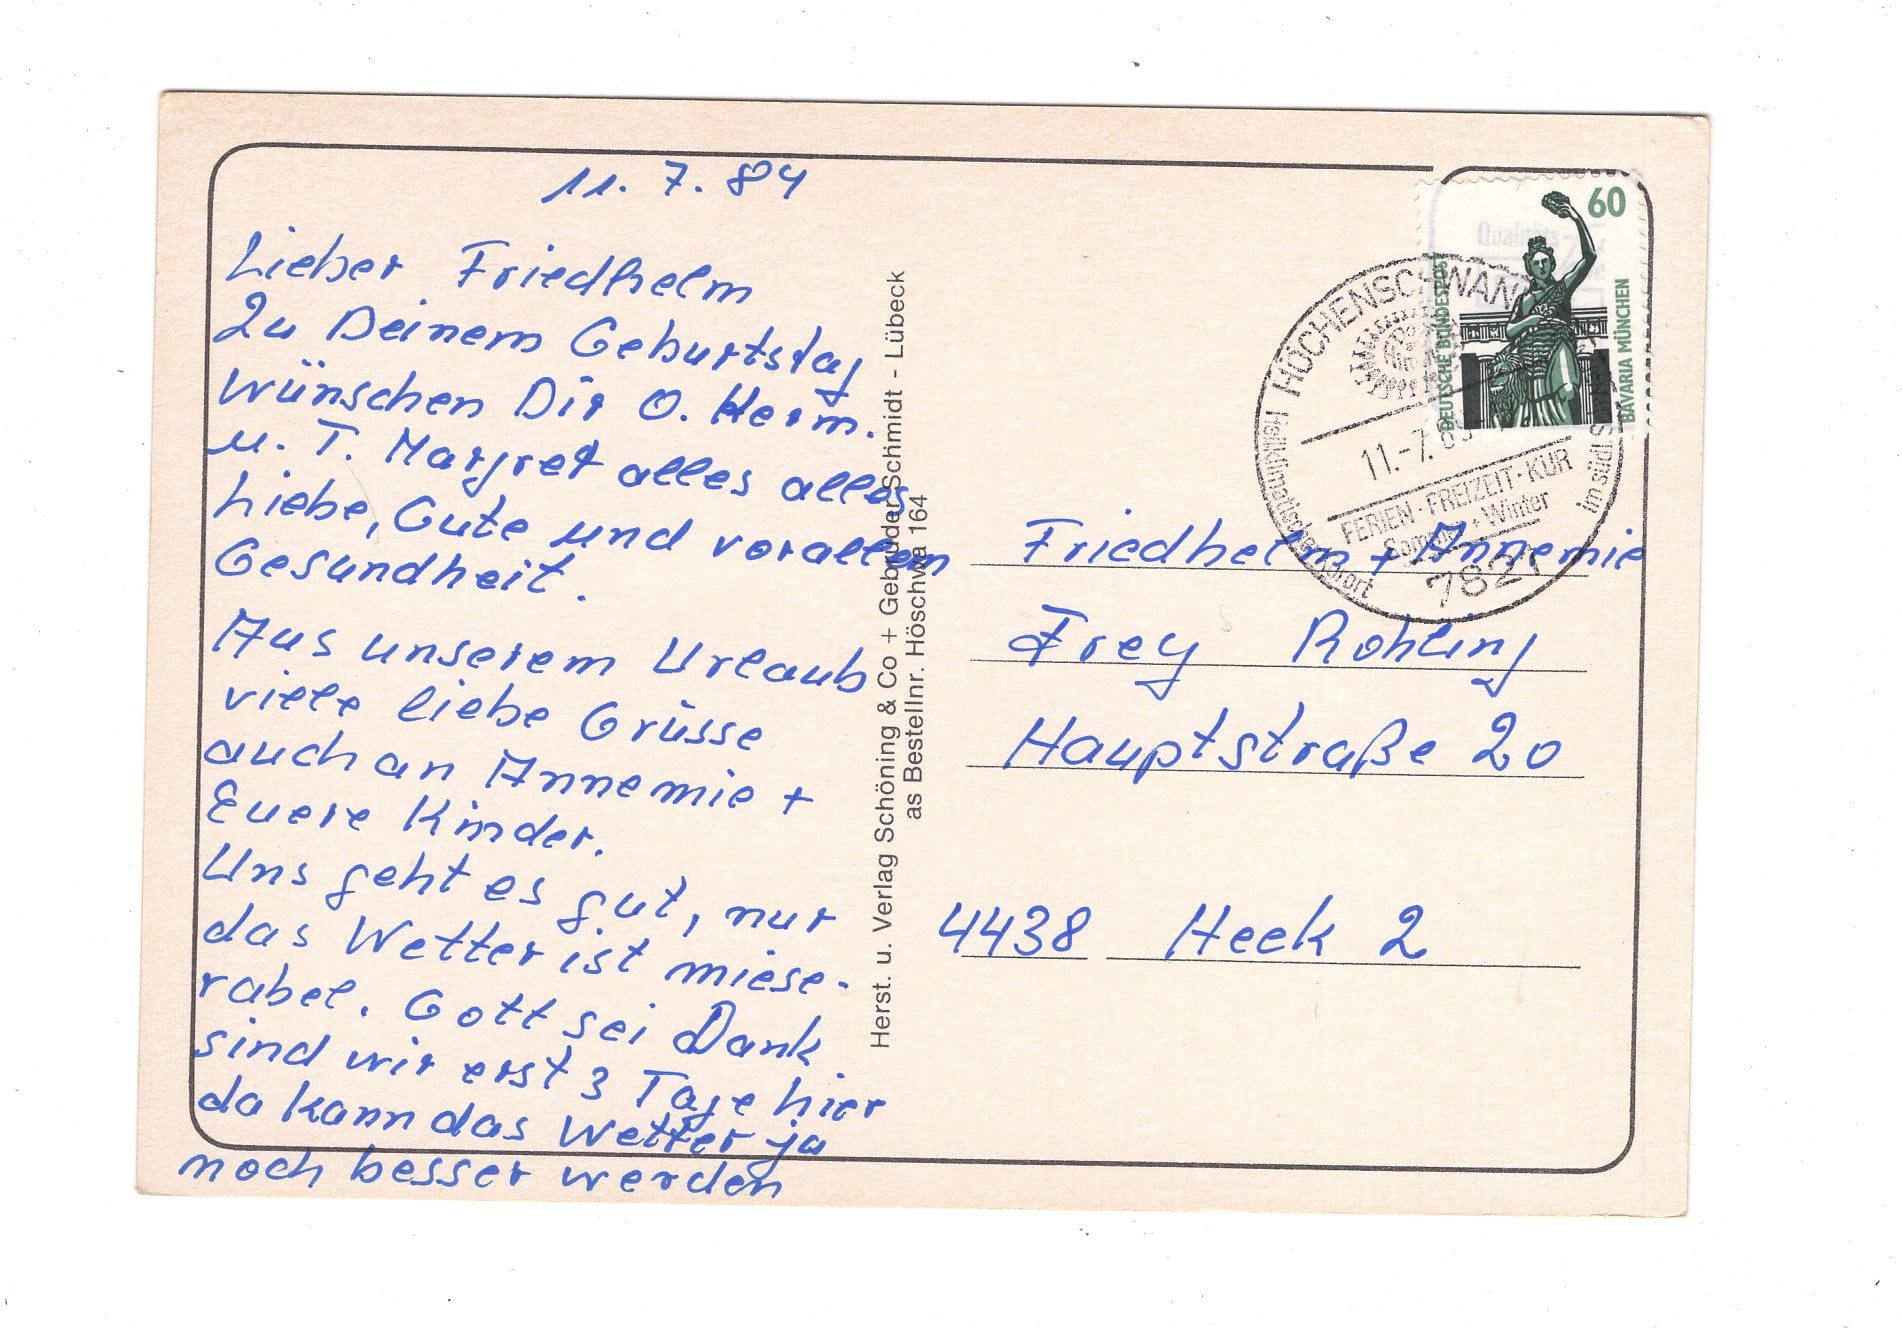 11. 7. 89
Lieber Friedhelm
Zu Deinem Geburtstag
wünschen Dir O. Herm.
u. T. Margret alles alles
Liebe, Gute und vorallem
Gesundheit.
Aus unserem Urlaub
viele liebe Grüsse
auch an Annemie +
Euere Kinder.
Uns geht es gut, nur
das Wetter ist miese-
rabel. Gott sei Dank
sind wir erst 3 Tage hier
da kann das Wetter ja
noch besser werden
Herst. u. Verlag Schöning & Co + Gebrüder Schmidt - Lübeck
as Bestellnr. Höschwa 164
60
DEUTSCHE BUNDESPOST
BAVARIA MÜNCHEN
HÖCHENSCHWAND
11.-7.89
FERIEN·FREIZEIT·KUR
Sommer + Winter
Heilklimatischer Kurort
im südl.
7821
Friedhelm + Annemie
Frey Rohling
Hauptstraße 20
4438 Heek 2